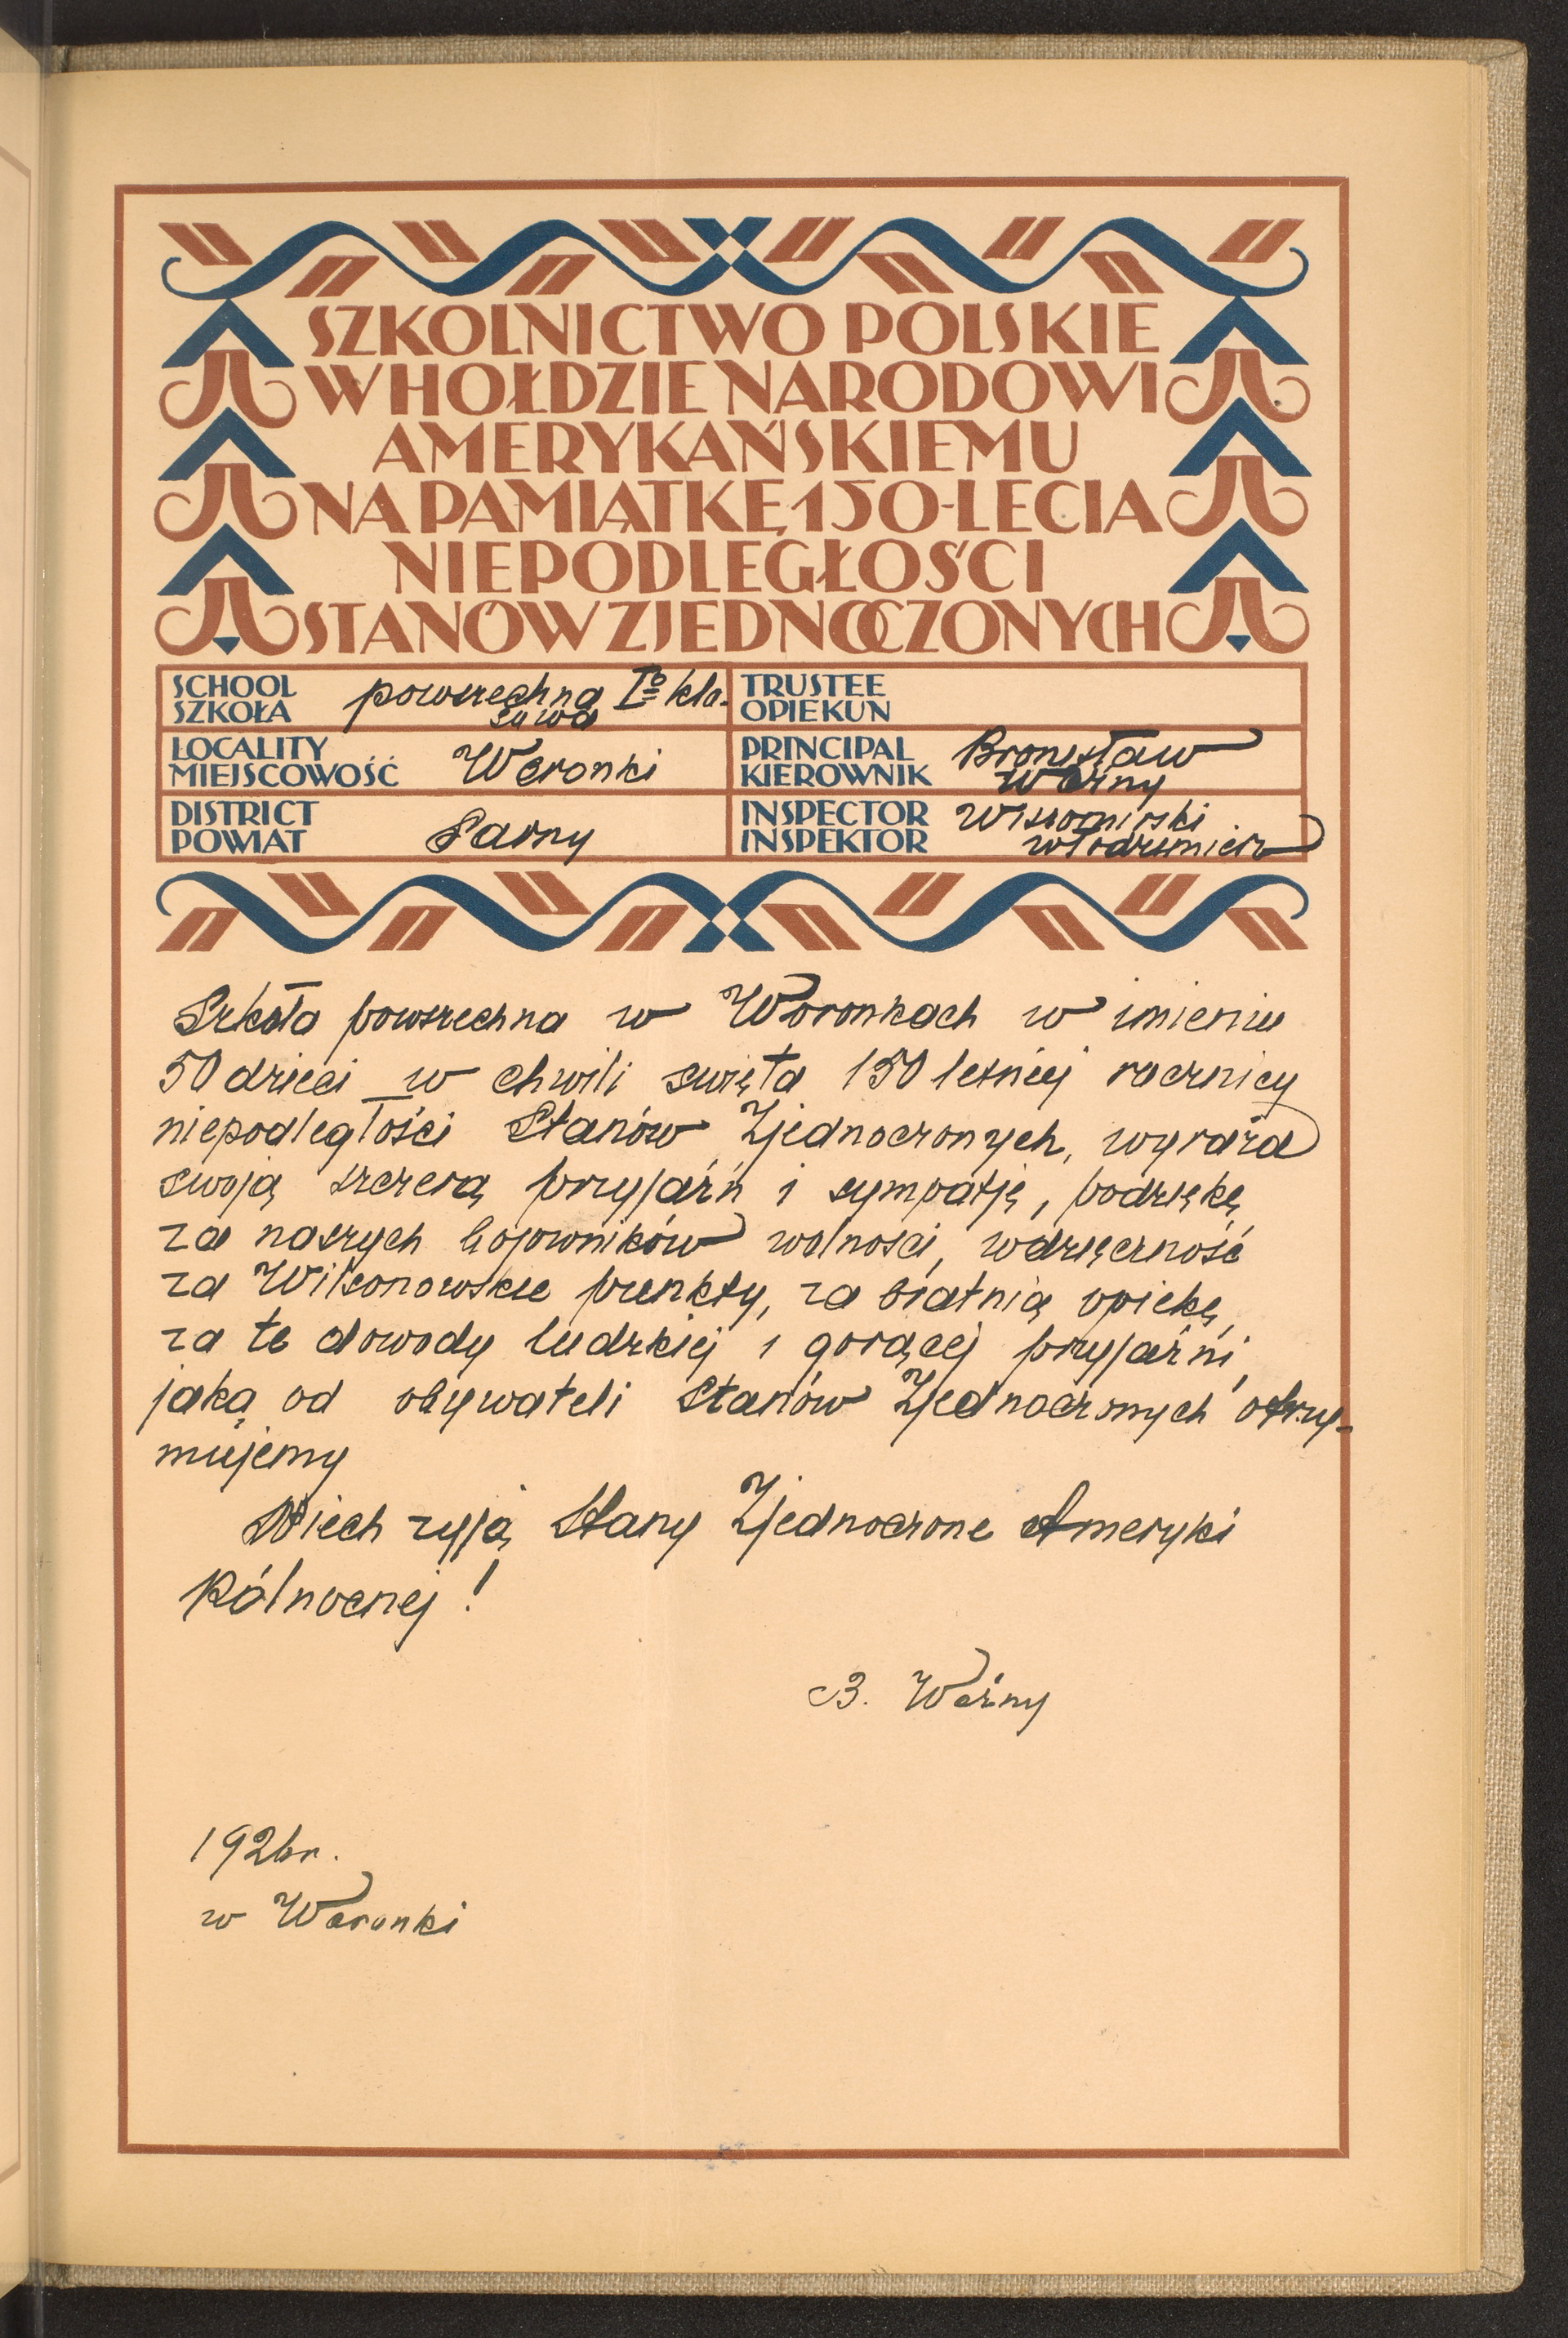 SZKOLNICTWO POLSKIE
W HOŁDZIE NARODOWI
AMERYKAŃSKIEMU
NA PAMIĄTKĘ 150-LECIA
NIEPODLEGŁOŚCI
STANÓW ZJEDNOCZONYCH
SCHOOL
SZKOŁA
powszechna Iº kla-
sowa
TRUSTEE
OPIEKUN
LOCALITY
MIEJSCOWOŚĆ
Woronki
PRINCIPAL
KIEROWNIK
Bronisław
Woźny
DISTRICT
POWIAT
Sarny
INSPECTOR
INSPEKTOR
Włodzimierz
Szkoła powszechna w Woronkach w imieniu
50 dzieci w chwili święta 150 letniej rocznicy
niepodległości Stanów Zjednoczonych, wyraża
swoją szczerą przyjaźń i sympatję, podziękę
za naszych bojowników wolności, wdzięczność
za Wilsonowskie punkty, za bratnią opiekę,
za te dowody ludzkiej i gorącej przyjaźni,
jaką od obywateli Stanów Zjednoczonych otrzy-
mujemy
Niech żyją Stany Zjednoczone Ameryki
Północnej!
B. Woźny
1926r.
w Woronki